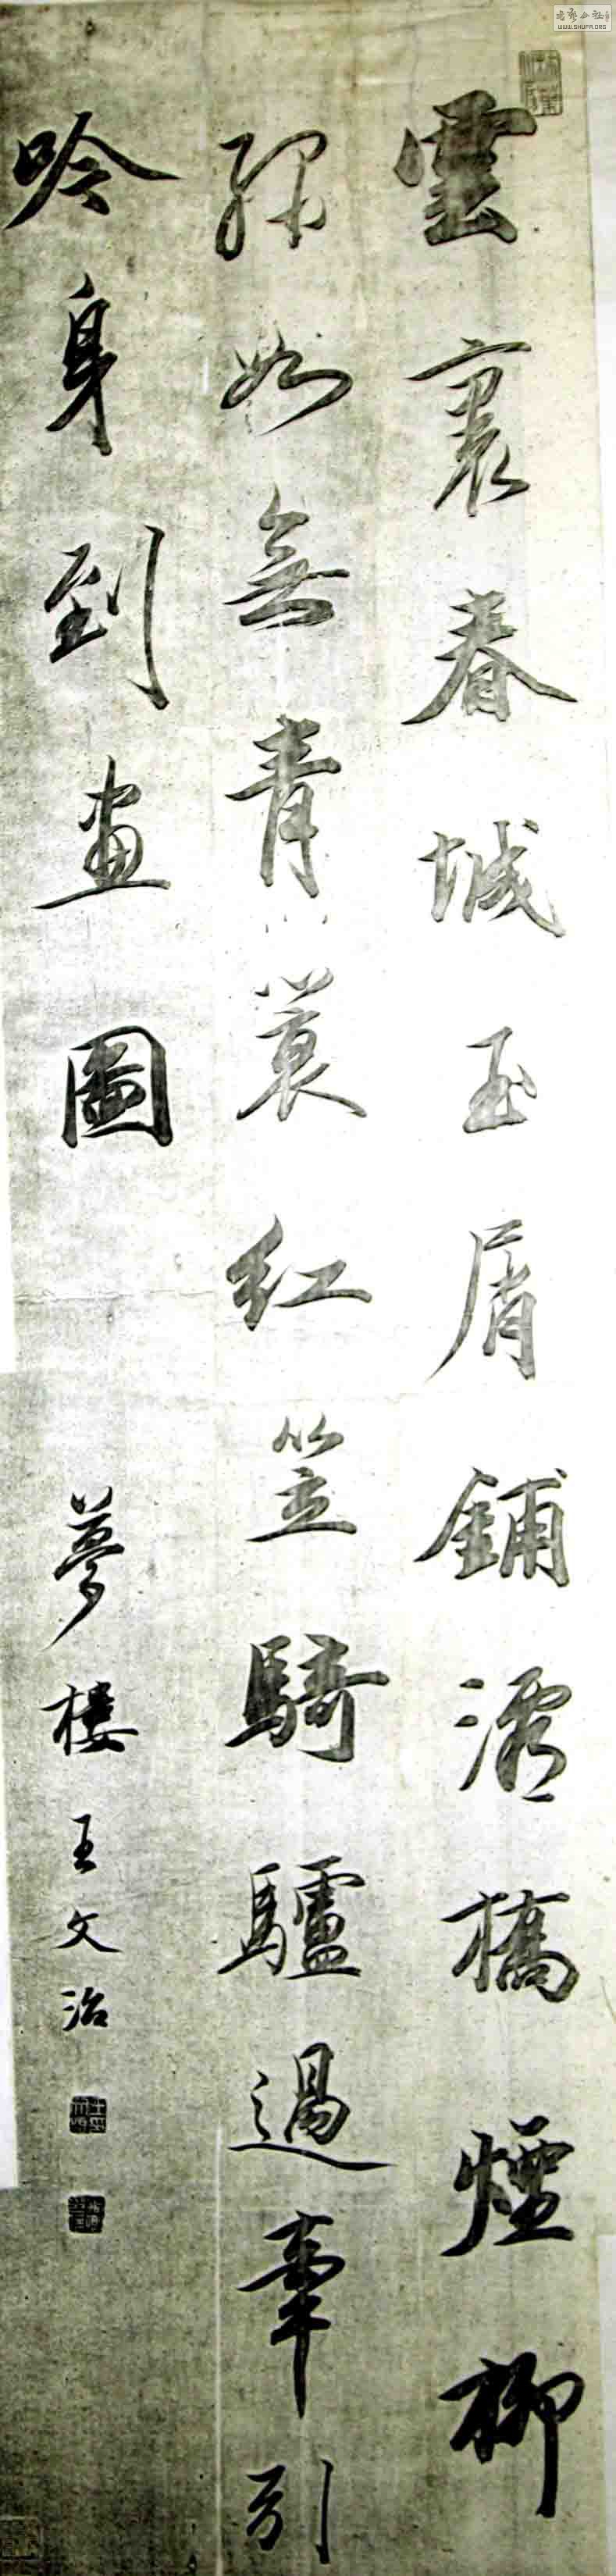 雲裏春城玉屑鋪灞橋煙柳
綠如無青蓑紅笠騎驢過牽引
吟身到畫圖
夢樓王文治
WWW.SHUFA.ORG